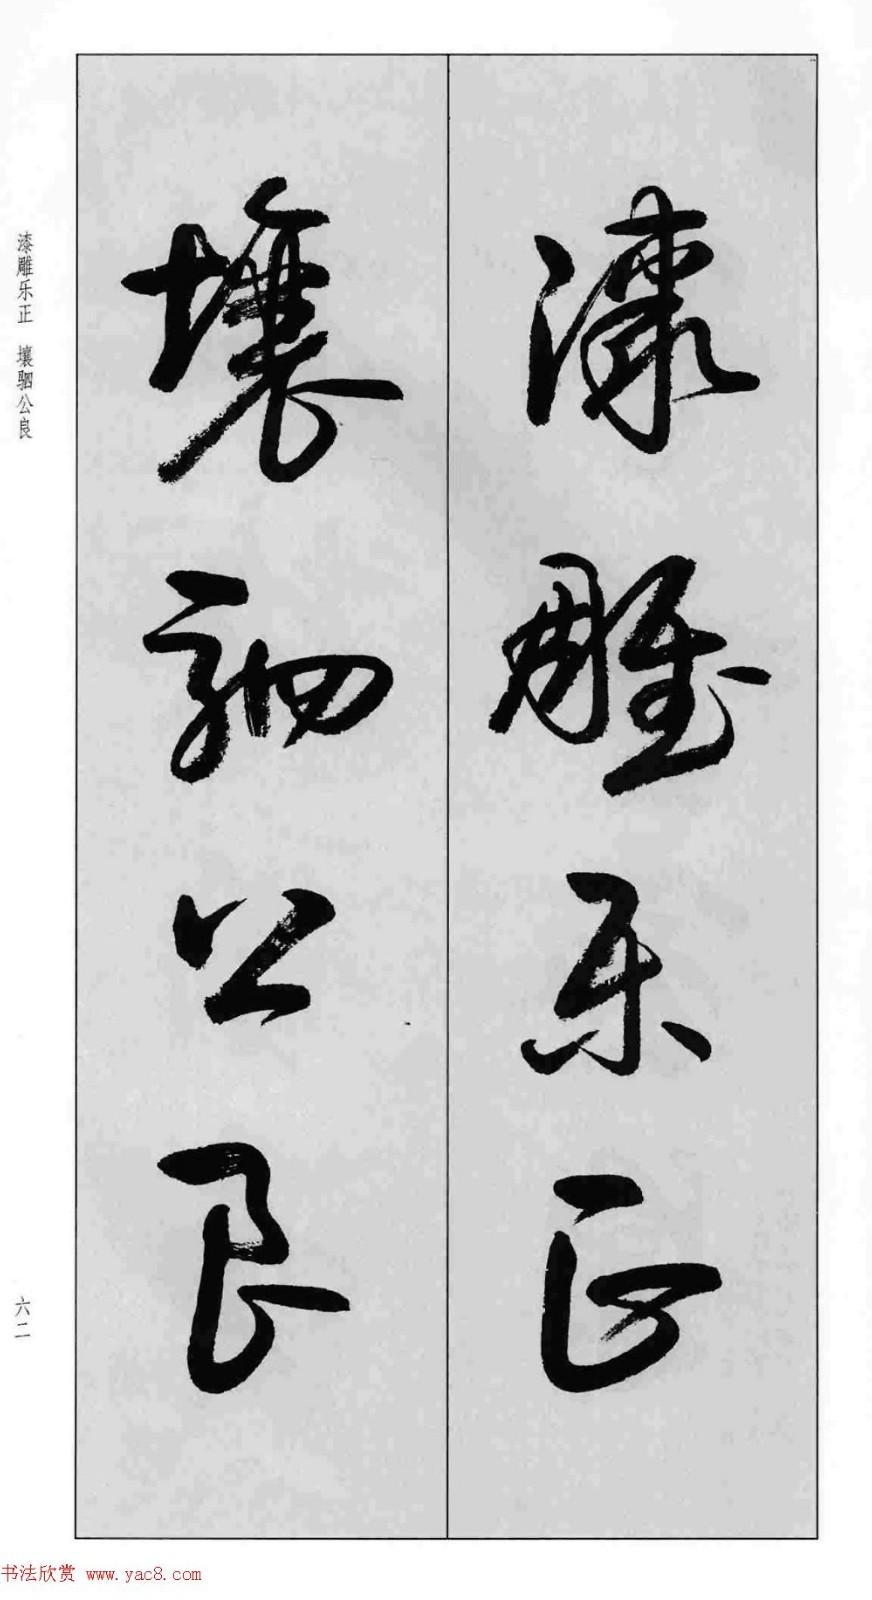 漆雕乐正
壤驷公良
漆雕乐正 壤驷公良
六二
书法欣赏 www.yac8.com